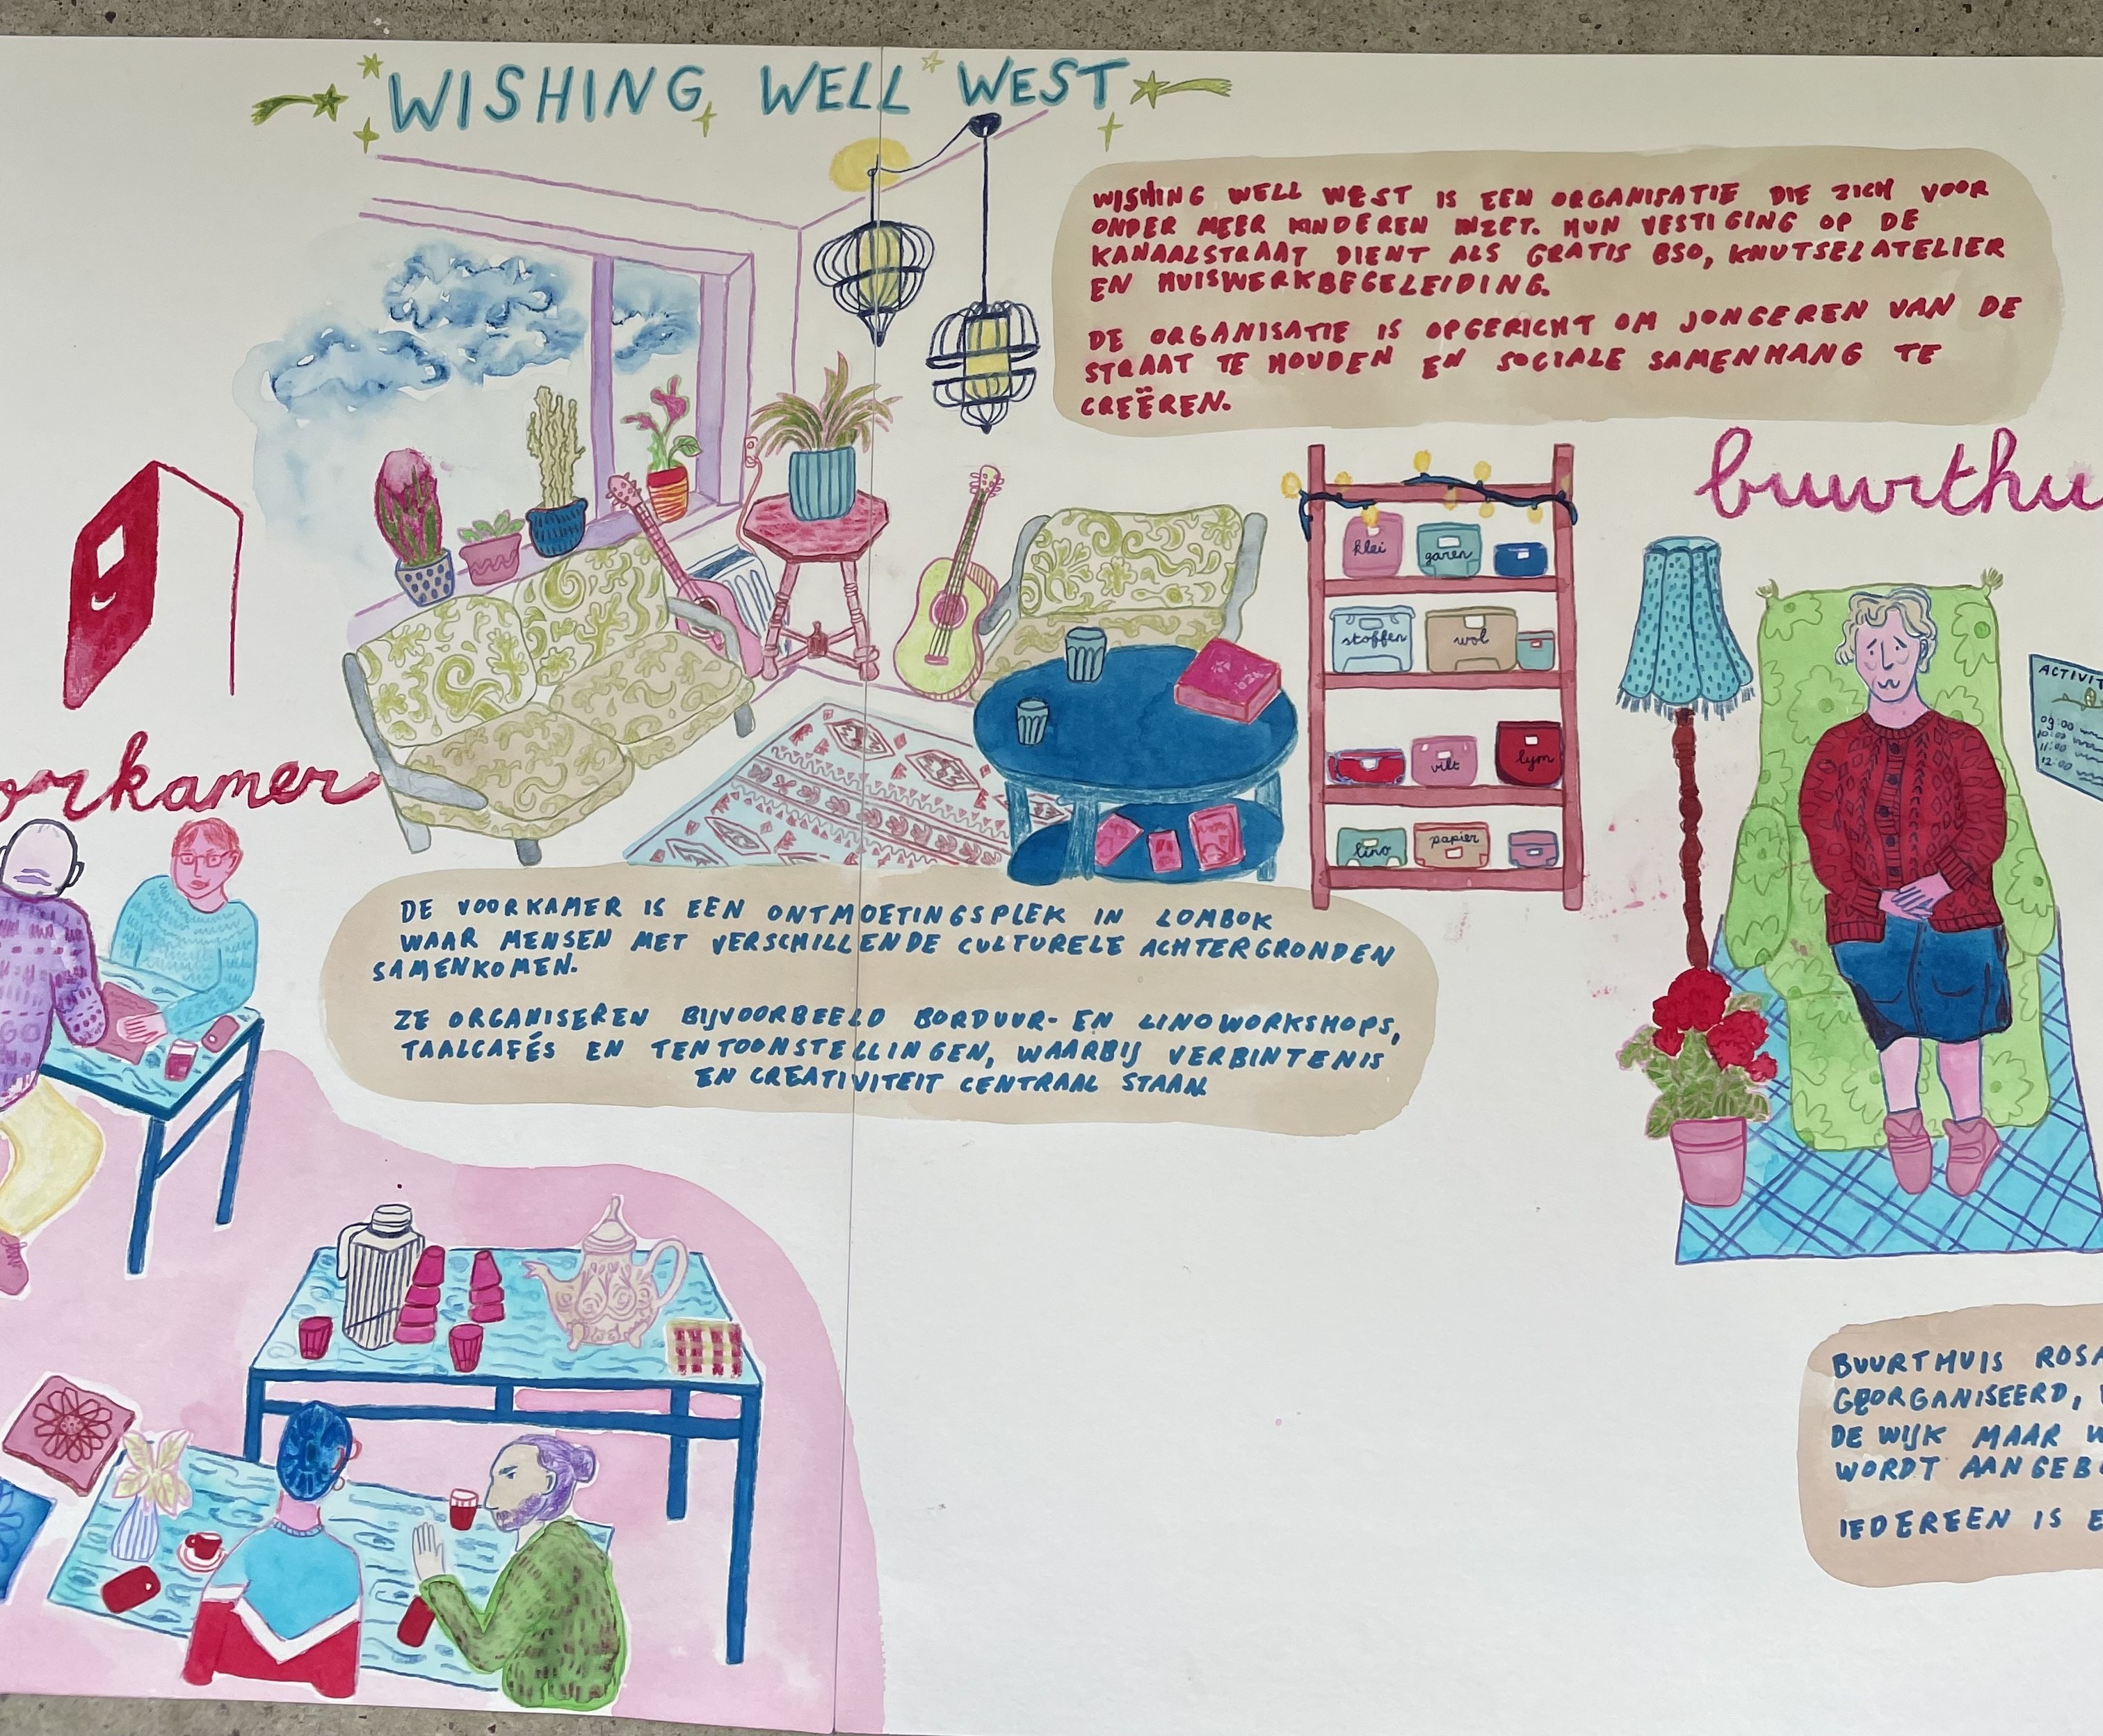 WISHING WELL WEST
WISHING WELL WEST IS EEN ORGANISATIE DIE ZICH VOOR
ONDER MEER KINDEREN INZET. HUN VESTIGING OP DE
KANAALSTRAAT DIENT ALS GRATIS BSO, KNUTSELATELIER
EN HUISWERKBEGELEIDING.
DE ORGANISATIE IS OPGERICHT OM JONGEREN VAN DE
STRAAT TE HOUDEN EN SOCIALE SAMENHANG TE
CREËREN.
klei garen
stoffen wol
vilt lijm
lino papier
orkamer
DE VOORKAMER IS EEN ONTMOETINGSPLEK IN LOMBOK
WAAR MENSEN MET VERSCHILLENDE CULTURELE ACHTERGRONDEN
SAMENKOMEN.
ZE ORGANISEREN BIJVOORBEELD BORDUUR- EN LINOWORKSHOPS,
TAALCAFÉS EN TENTOONSTELLINGEN, WAARBIJ VERBINTENIS
EN CREATIVITEIT CENTRAAL STAAN
buurthu
ACTIVIT
09:00
10:00
11:00
12:00
BUURTHUIS ROSA
GEORGANISEERD,
DE WIJK MAAR W
WORDT AANGEBO
IEDEREEN IS E